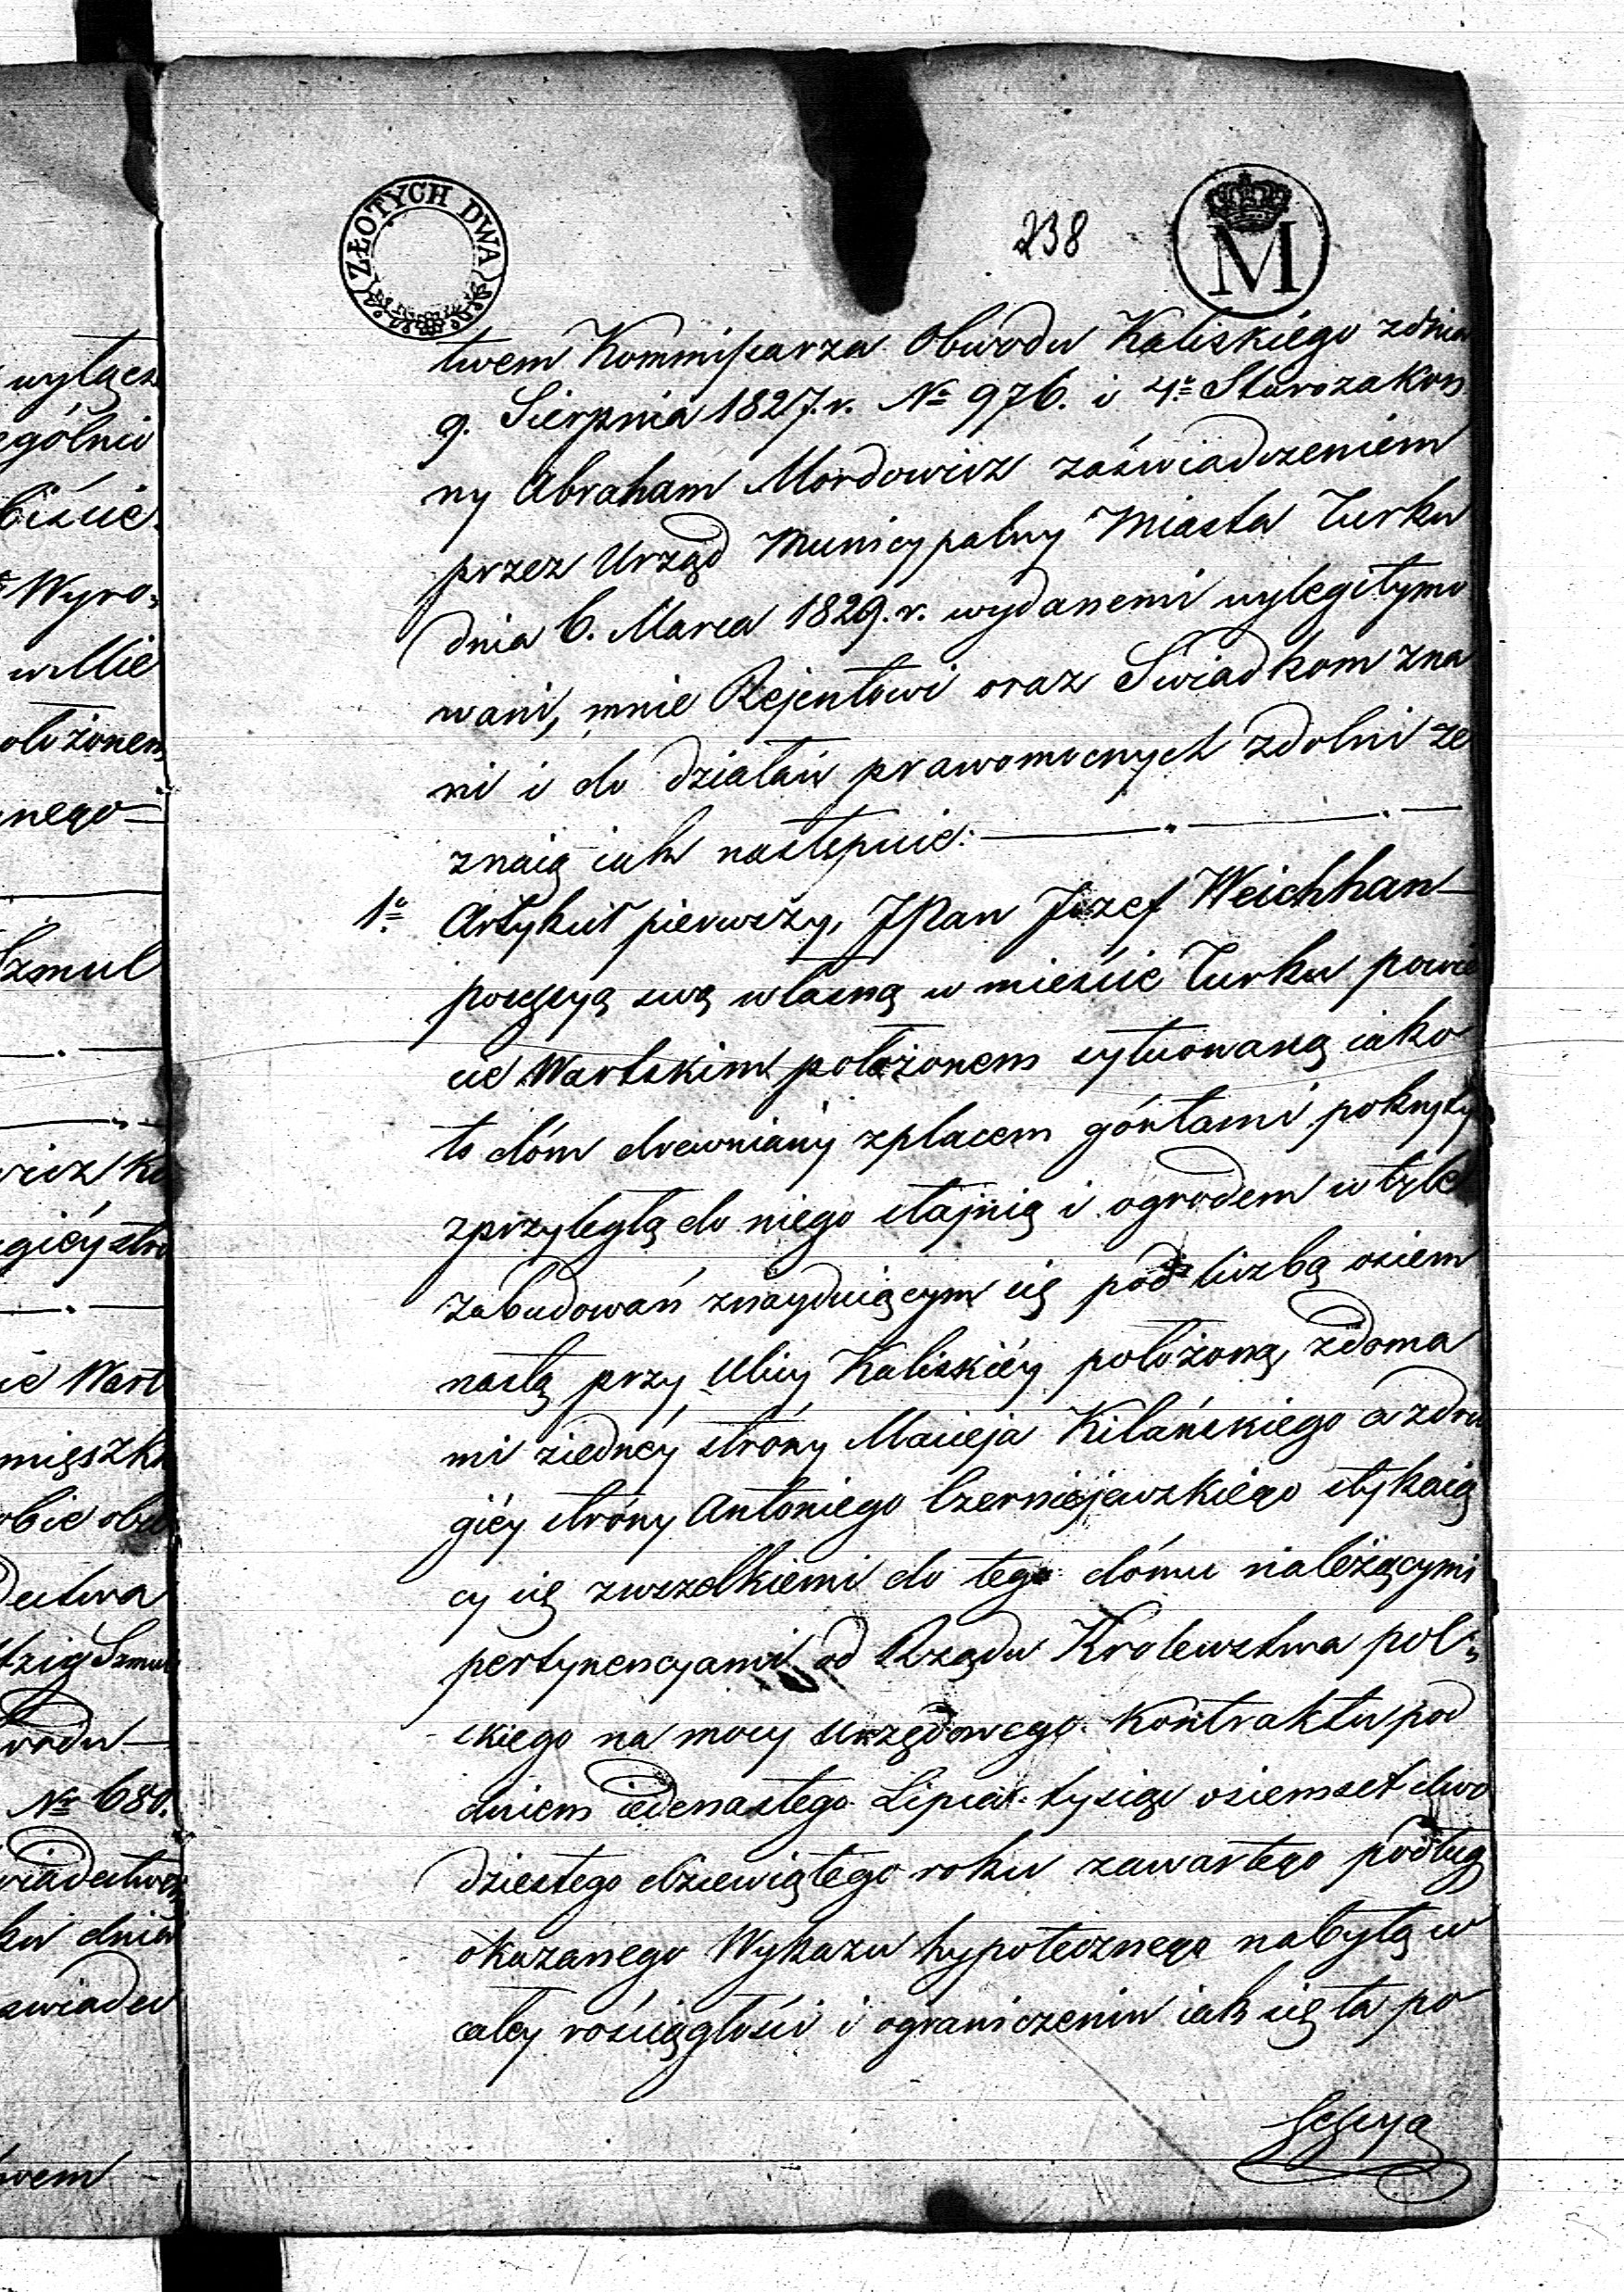 ZŁOTYCH DWA
238
M
twem Kommissarza Obwodu Kaliskiégo zdnia
9. Sierpnia 1827. r. № 976. i 4º Starozakon
ny Abraham Mordowicz zaświadczeniem
przez Urząd Municypalny Miasta Turku
dnia 6. Marca 1829. r. wydanemi wylegitymo
wani, mnie Rejentowi oraz Swiadkom zna
ni i do działań prawomocnych zdolni ze
znaią iak następuie:
1º Artykuł pierwszy, JPan Jozef Weichhan
possessyą swą własną w mieście Turku powie
cie Wartskim położonem sytuowaną iako
to dóm drewniany zplacem góntami pokryty
zprzyległą do niego stajnią i ogrodem w tyle
zabudowań znayduiącym się pod liczbą osiem
nastą przy Ulicy Kaliskiéy położoną, zdoma
mi ziednéy stróny Macieja Kilańskiego a zdru
giéy stróny Antoniego Czerniejewskiego stykaią
cy się zwszelkiemi do tego dómu należącymi
pertynencyami od Rządu Krolewstwa pol
skiego na mocy urzędowego Kontraktu pod
dniem iedenastego Lipca tysiąc osiemset dwu
dziestego dziewiątego roku zawartego podług
okazanego Wykazu hypotecznego nabytą w
całey rościągłości i ograniczeniu iak się ta po
ssessya
wyłącz
ególniu
biście
Wyro
w Mie
ołożonem
nego
Szmul
wicz
giéy stro
ie Wart
mięszka
obie
Szmul
wodu
№ 680.
iadectwem
ku dnia
zwiadec
wem